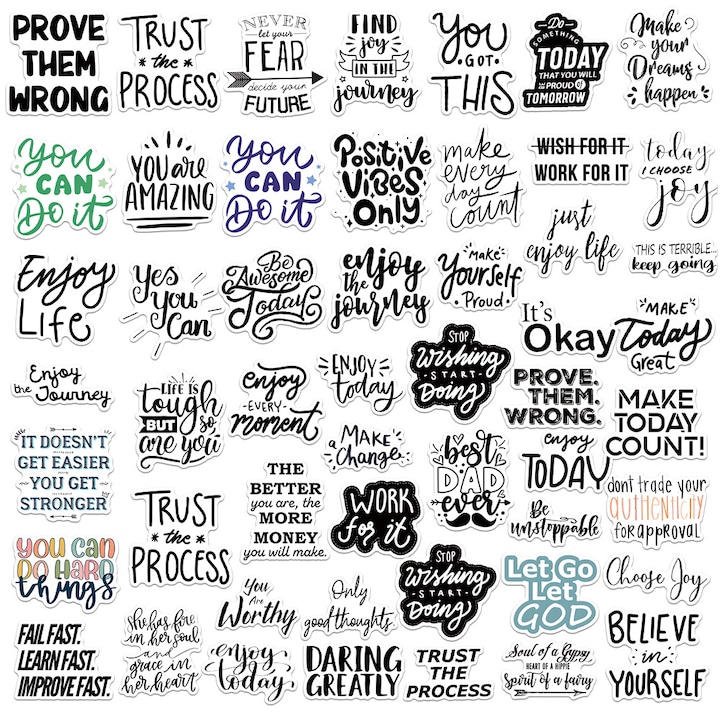 PROVE
THEM
WRONG
TRUST
the
PROCESS
NEVER
let your
FEAR
decide your
FUTURE
FIND
joy
IN THE
journey
You
GOT
THIS
Do
SOMETHING
TODAY
THAT YOU WILL
BE PROUD of
TOMORROW
Make
your
Dreams
happen
You
CAN
Do it
YOU are
AMAZING
You
CAN
Do it
Positive
VIBES
Only
make
every
day
count
WISH FOR IT
WORK FOR IT
today
I CHOOSE
joy
just
enjoy life
THIS IS TERRIBLE..
keep going
Enjoy
Life
Yes
You
Can
Be
Awesome
Today
enjoy
the
journey
Make
Yourself
Proud
It's
Okay
MAKE
Today
Great
Enjoy
the Journey
LIFE IS
tough
BUT so
are you
enjoy
EVERY
moment
ENJOY
today
STOP
Wishing
START
Doing
PROVE.
THEM.
WRONG.
MAKE
TODAY
COUNT!
IT DOESN'T
GET EASIER
YOU GET
STRONGER
a MAKE
Change
best
DAD
ever
enjoy
TODAY
dont trade your
authenticity
for approval
TRUST
the
PROCESS
THE
BETTER
you are, the
MORE
MONEY
you will make.
WORK
for it
Be
unstoppable
YOU CAN
DO HARD
things
You
Are
Worthy
Only
good thoughts
STOP
Wishing
START
Doing
Let Go
Let
GOD
Choose Joy
FAIL FAST.
LEARN FAST.
IMPROVE FAST.
She has fire
in her soul
and
grace in
her heart
enjoy
today
DARING
GREATLY
TRUST
THE
PROCESS
Soul of a Gypsy
HEART OF A HIPPIE
Spirit of a fairy
BELIEVE
in
YOURSELF